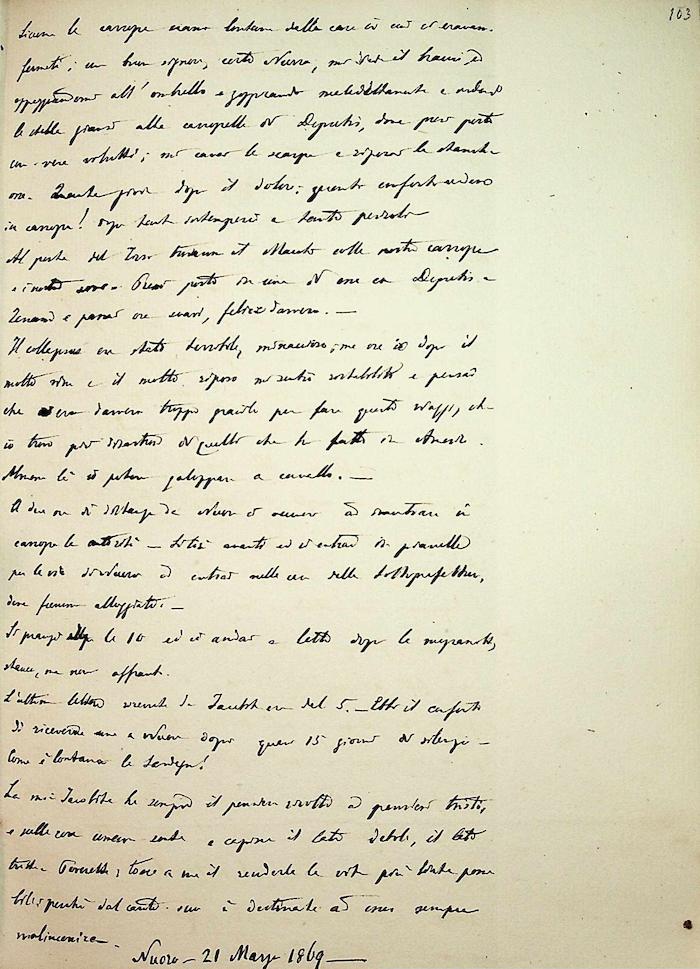 103
Siccome le carrozze erano lontane dalla casa in cui ci eravam
fermati; un buon signore, certo Nurra, mi diede il braccio, ed
appoggiandomi all'ombrello e zoppicando maledettamente e
le stelle giunsi alla carrozzella di Depretis, dove presi posto
con vera voluttà; mi cavai le scarpe e riposai le stanche
ossa. Quanta gioia dopo il dolore; quanto conforto vedersi
in carrozza! dopo tante intemperie e tanto pericolo
Al ponte del Tirso trovammo il colle nostre carrozze
e i nostri Presi posto in una di esse con Depretis
e passai ore soavi, felici davvero. —
Il collapsus era stato terribile, minaccioso; ma ora io dopo il
molto vino e il molto riposo mi sentii ristabilito e pensai
che era davvero troppo gracile per fare questo viaggio, ch
io trovo più disastroso di quello che ho fatto in America.
Almeno là si poteva galoppare a cavallo. —
A due ore di distanza da Nuoro ci vennero ad incontrare in
carrozza le autorità — Si tirò avanti ed si entrò in pianelle
per le vie di Nuoro ad entrai nella casa della Sottoprefettura,
dove fummo alloggiati. —
Si pranzò alle 10 ed si andò a letto dopo la mezzanotte,
stanco, ma non affranto.
L'ultima lettera ricevuta da Jacobita era del 5. — Ebbi il conforto
di riceverne una a Nuoro dopo quasi 15 giorni di silenzio —
Come è lontana la Sardegna!
La mia Jacobita ha sempre il pensiero rivolto a pensieri tristi,
e nelle cose umane sente e capisce il lato debole, il lato
triste. Poveretta; tocca a me il renderle la vita più lieta possi
bile; perché dal canto suo è destinata ad esser sempre
malinconica —
Nuoro — 21 Marzo 1869 —